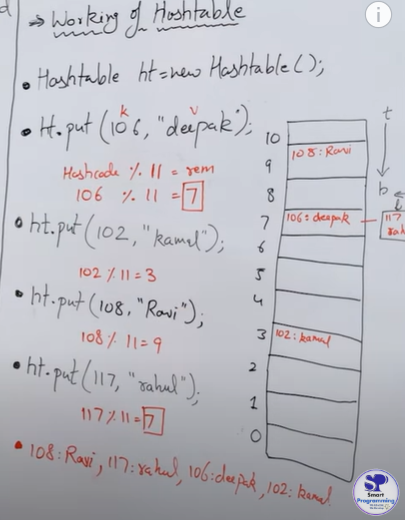 ⇒ Working of Hashtable
• Hashtable ht=new Hashtable();
k v
• Ht.put (106, "deepak");
Hashcode % 11 = rem
106 % 11 = 7
• ht.put(102, "kamal");
102 % 11 = 3
• ht.put(108, "Ravi");
108 % 11 = 9
• ht.put(117, "rahul");
117 % 11 = 7
• 108:Ravi, 117:rahul, 106:deepak, 102:kamal
10
9 108:Ravi
8
7 106:deepak
6
5
4
3 102:kamal
2
1
0
t
b
117
rah
SP
Smart
Programming